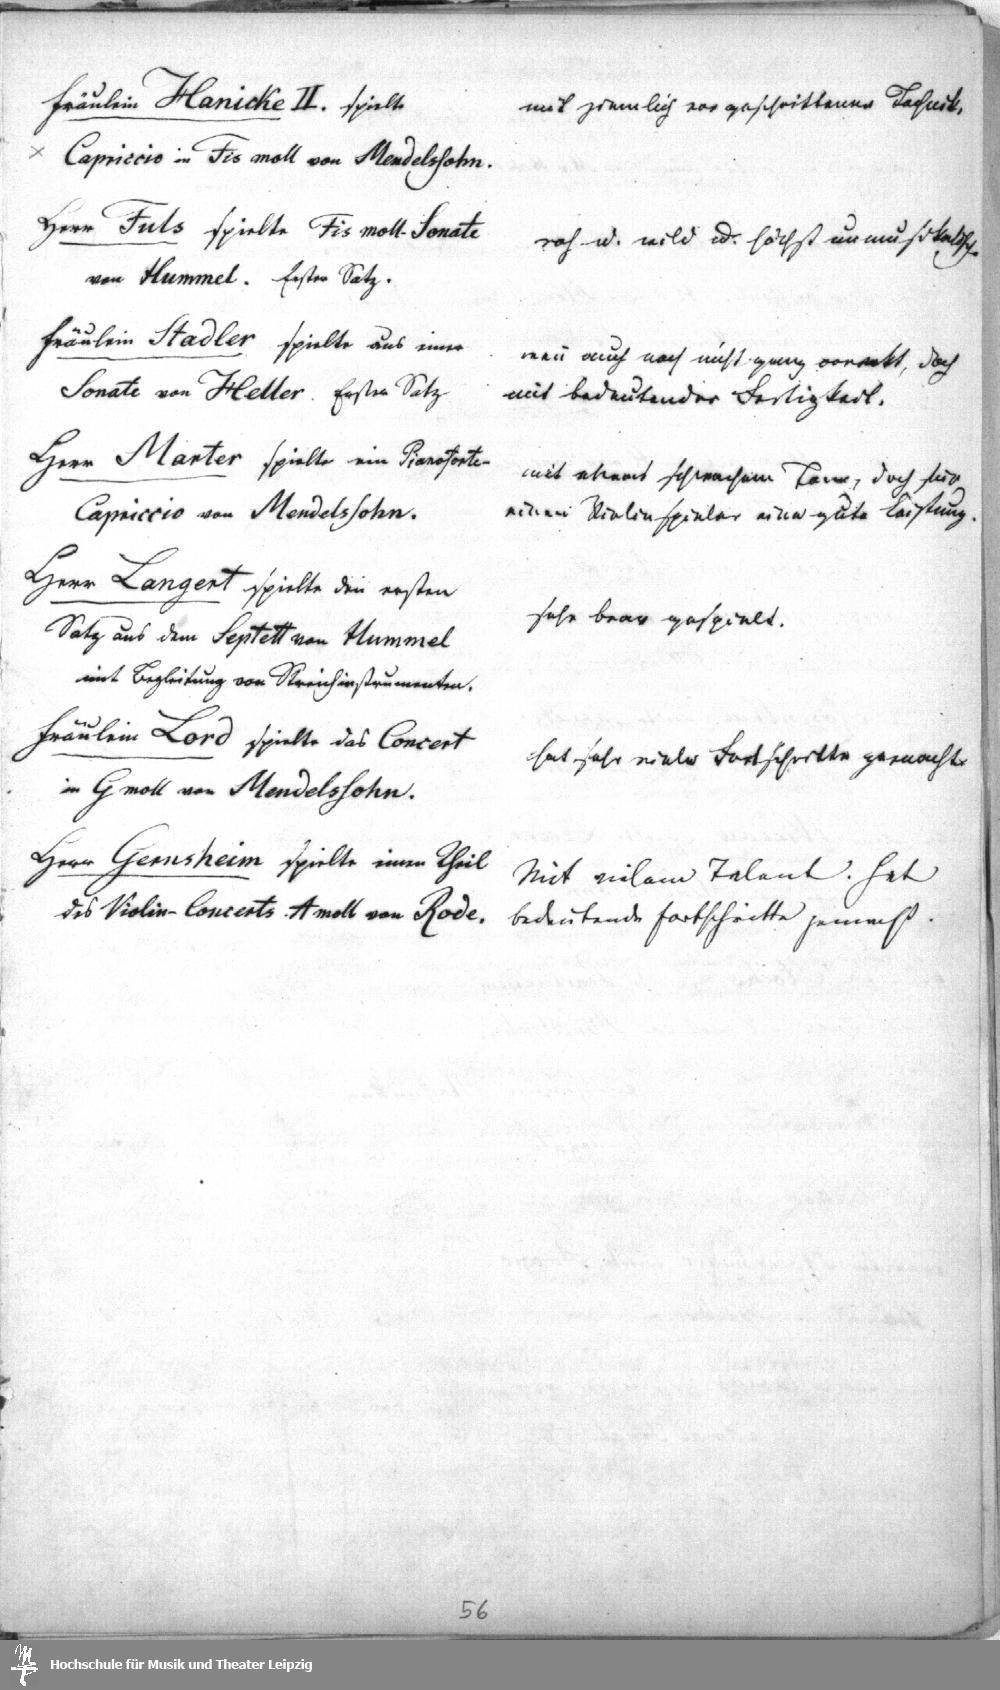 Fräulein Hanicke II. spielte
Capriccio in Fis moll von Mendelssohn.
mit ziemlich vorgeschrittener Technik.
Herr Fuls spielte Fis moll-Sonate
von Hummel. Erster Satz.
roh u. wild u. höchst unmusikalisch.
Fräulein Stadler spielte aus einer
Sonate von Heller. Erster Satz
wenn auch noch nicht ganz correkt, doch
mit bedeutender Fertigkeit.
Herr Marter spielte ein Pianoforte-
Capriccio von Mendelssohn.
mit etwas schwachem Tone, doch für
einen Violinspieler eine gute Leistung.
Herr Langert spielte den ersten
Satz aus dem Septett von Hummel
mit Begleitung von Streichinstrumenten.
sehr brav gespielt.
Fräulein Lord spielte das Concert
in G moll von Mendelssohn.
hat sehr viele Fortschritte gemacht
Herr Gernsheim spielte einen Theil
des Violin-Concerts A moll von Rode.
Mit vielem Talent. hat
bedeutende Fortschritte gemacht.
56
Hochschule für Musik und Theater Leipzig